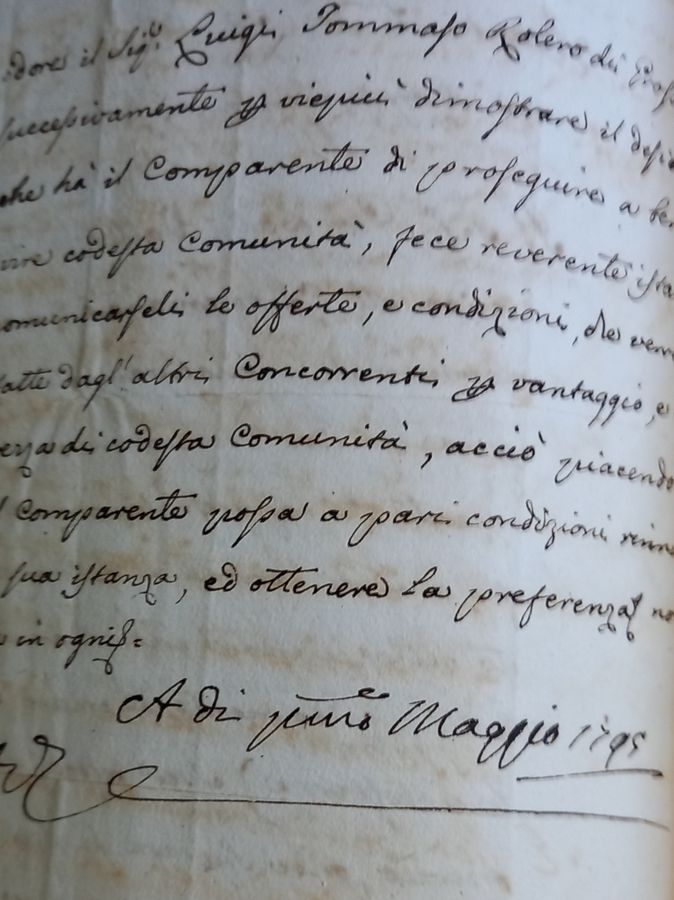 dore il Sigr. Luigi Tommaso Rolero di
successivamente p viepiù dimostrare il desi
che hà il Comparente di proseguire a ber
vire codesta Comunità, fece reverente ista
omunicarseli le offerte, e condizioni, che verr
atte dagl' altri Concorrenti p vantaggio, e
ezza di codesta Comunità, acciò piacendo
l Comparente possa a pari condizioni rinn
sua istanza, ed ottenere la preferenza no
in ogni
A di primo Maggio 1795